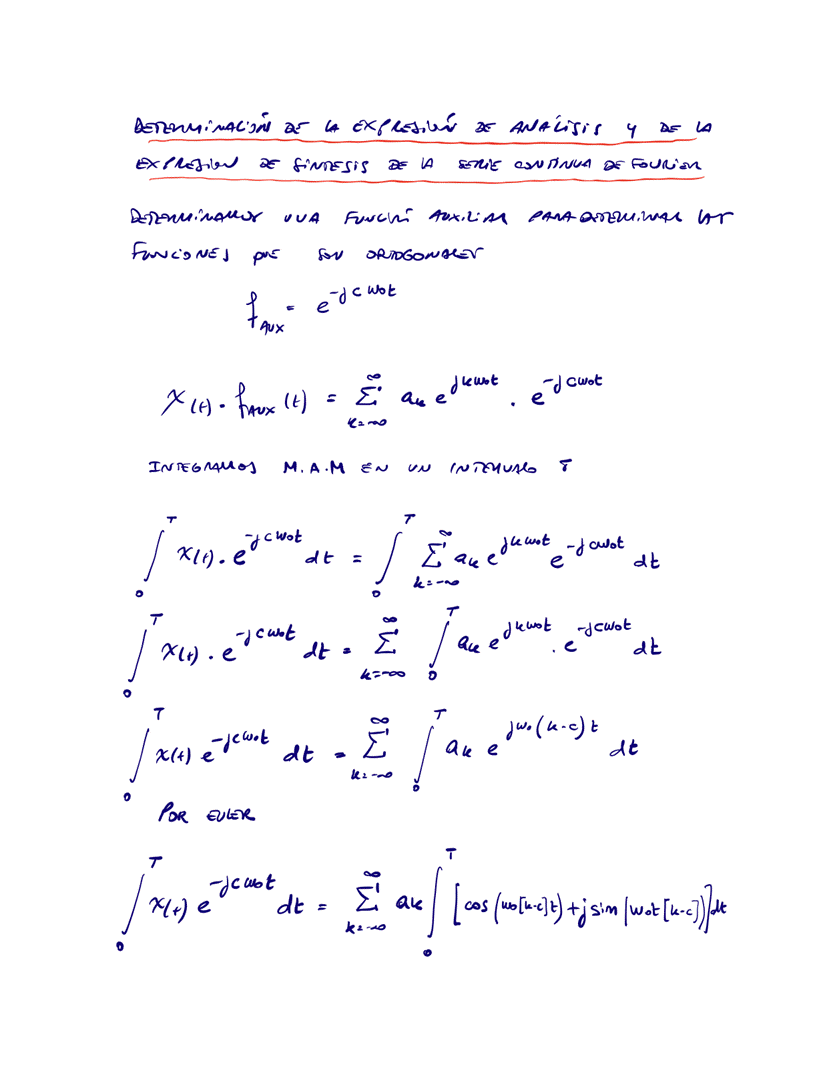 DETERMINACIÓN DE LA EXPRESIÓN DE ANÁLISIS Y DE LA
EXPRESION DE SÍNTESIS DE LA SERIE CONTINUA DE FOURIER
DETERMINAMOS UNA FUNCIÓN AUXILIAR PARA DETERMINAR LAS
FUNCIONES QUE SON ORTOGONALES
f_AUX = e^{-jcw₀t}
x(t) · f_AUX(t) = Σ_{k=-∞}^{∞} a_k e^{jkw₀t} · e^{-jcw₀t}
INTEGRAMOS M.A.M EN UN INTERVALO T
∫_0^T x(t) · e^{-jcw₀t} dt = ∫_0^T Σ_{k=-∞}^{∞} a_k e^{jkw₀t} e^{-jcw₀t} dt
∫_0^T x(t) · e^{-jcw₀t} dt = Σ_{k=-∞}^{∞} ∫_0^T a_k e^{jkw₀t} · e^{-jcw₀t} dt
∫_0^T x(t) e^{-jcw₀t} dt = Σ_{k=-∞}^{∞} ∫_0^T a_k e^{jw₀(k-c)t} dt
POR EULER
∫_0^T x(t) e^{-jcw₀t} dt = Σ_{k=-∞}^{∞} a_k ∫_0^T [cos(w₀[k-c]t) + j sin(w₀t[k-c])] dt